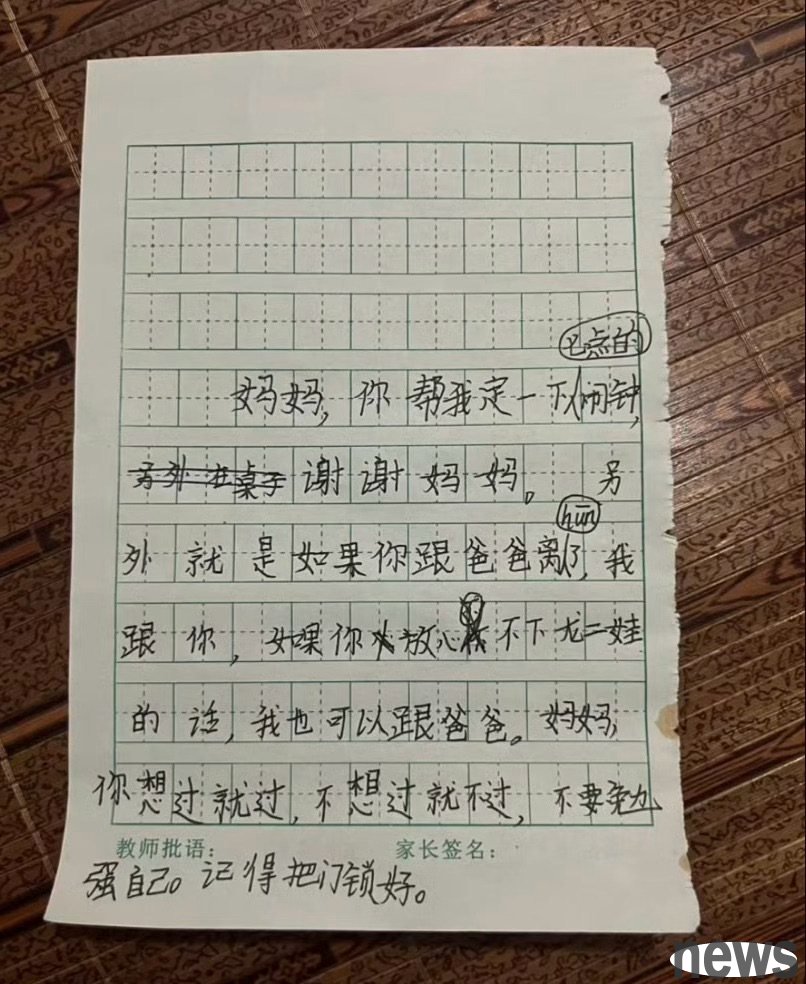 点的
妈妈，你帮我定一下闹钟，
另外在桌子谢谢妈妈。另
hūn
外就是如果你跟爸爸离了，我
跟你，如果你放心不下龙二娃
的话，我也可以跟爸爸。妈妈，
你想过就过，不想过就不过，不要勉
教师批语：
家长签名：
强自己。记得把门锁好。
news